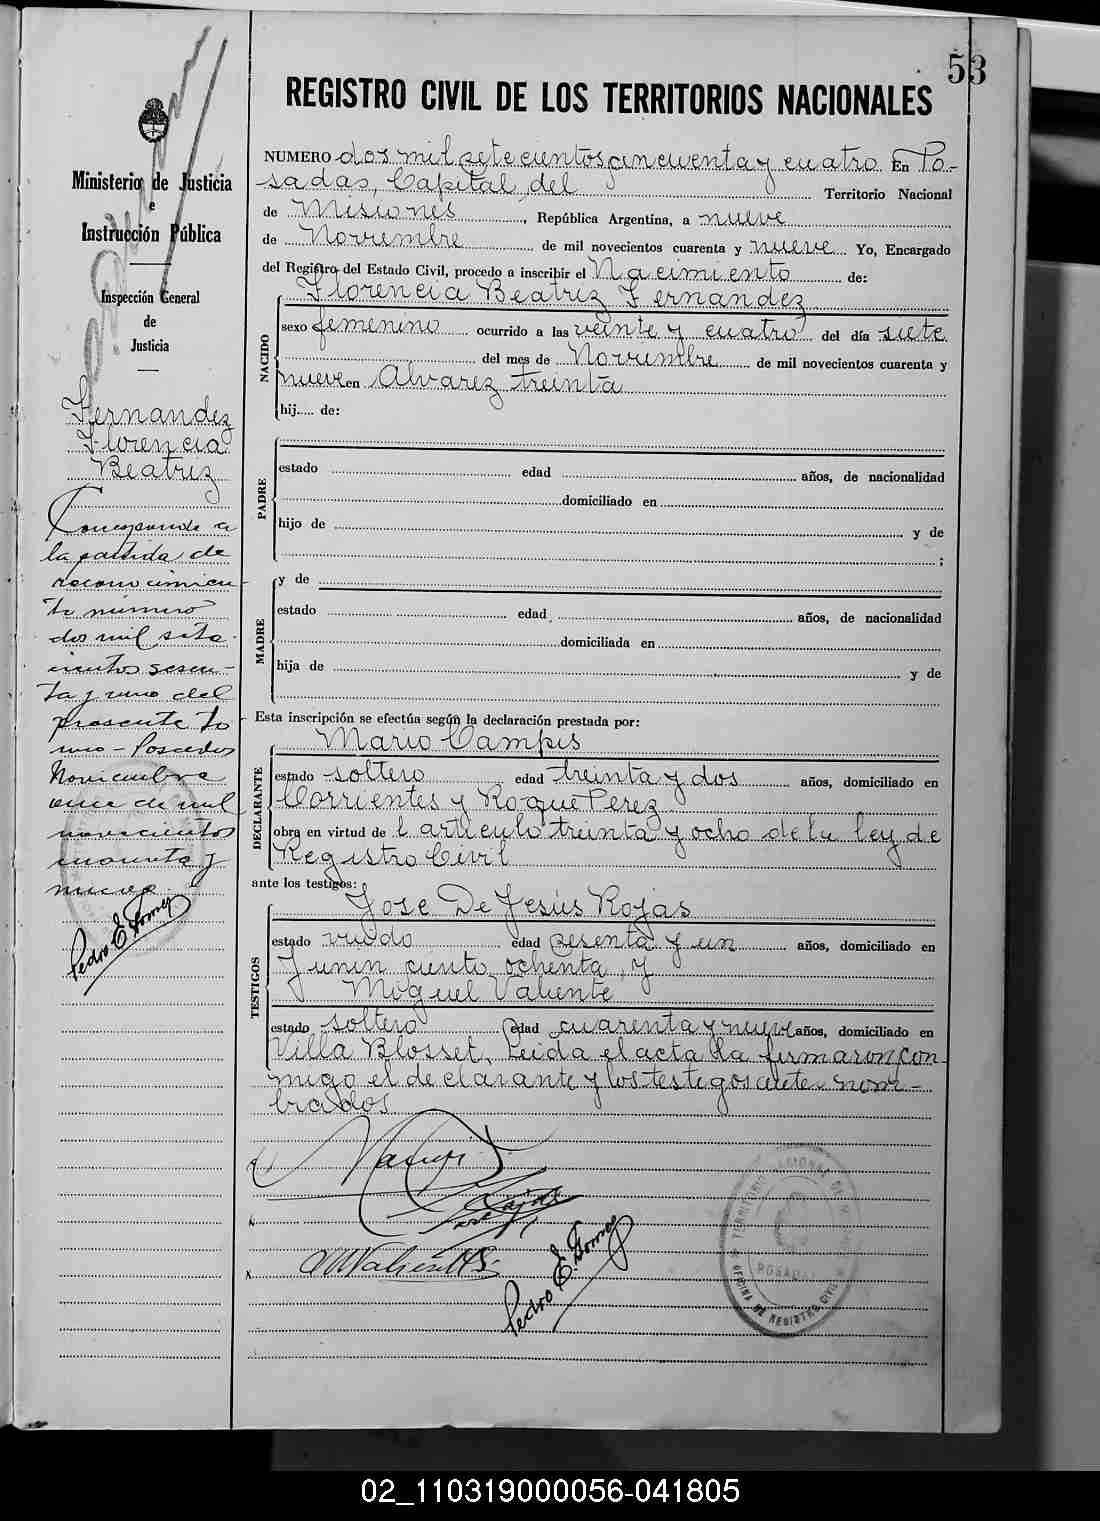 53
REGISTRO CIVIL DE LOS TERRITORIOS NACIONALES
Ministerio de Justicia
e
Instrucción Pública
Inspección General
de
Justicia
Fernandez
Florencia
Beatriz
Corresponde a
la partida de
reconocimien-
to número
dos mil sete
cientos sesen-
ta y uno del
presente to
mo - Posadas
Noviembre
once de mil
novecientos
cuarenta y
nueve.
Pedro E. Gomez
NUMERO dos mil setecientos cincuenta y cuatro En Po-
sadas, Capital del Territorio Nacional
de Misiones, República Argentina, a nueve
de Noviembre de mil novecientos cuarenta y nueve Yo, Encargado
del Registro del Estado Civil, procedo a inscribir el Nacimiento de:
Florencia Beatriz Fernandez
NACIDO
sexo femenino ocurrido a las veinte y cuatro del día siete
del mes de Noviembre de mil novecientos cuarenta y
nueve en Alvarez treinta
hij.... de:
PADRE
estado edad años, de nacionalidad
domiciliado en
hijo de y de
;
MADRE
y de
estado edad años, de nacionalidad
domiciliada en
hija de y de
Esta inscripción se efectúa según la declaración prestada por:
Mario Campis
DECLARANTE
estado soltero edad treinta y dos años, domiciliado en
Corrientes y Roque Perez
obra en virtud de l articulo treinta y ocho de la ley de
Registro Civil
ante los testigos:
Jose De Jesús Rojas
TESTIGOS
estado viudo edad sesenta y un años, domiciliado en
Junin ciento ochenta, y
Moguel Valiente
estado soltero edad cuarenta y nueve años, domiciliado en
Villa Blosset, Leida el acta la firmaron con-
migo el declarante y los testigos antes nom-
brados
Pedro E. Gomez
TERRITORIO NACIONAL DE MISIONES
POSADAS
OFICINA DE REGISTRO CIVIL
02_110319000056-041805